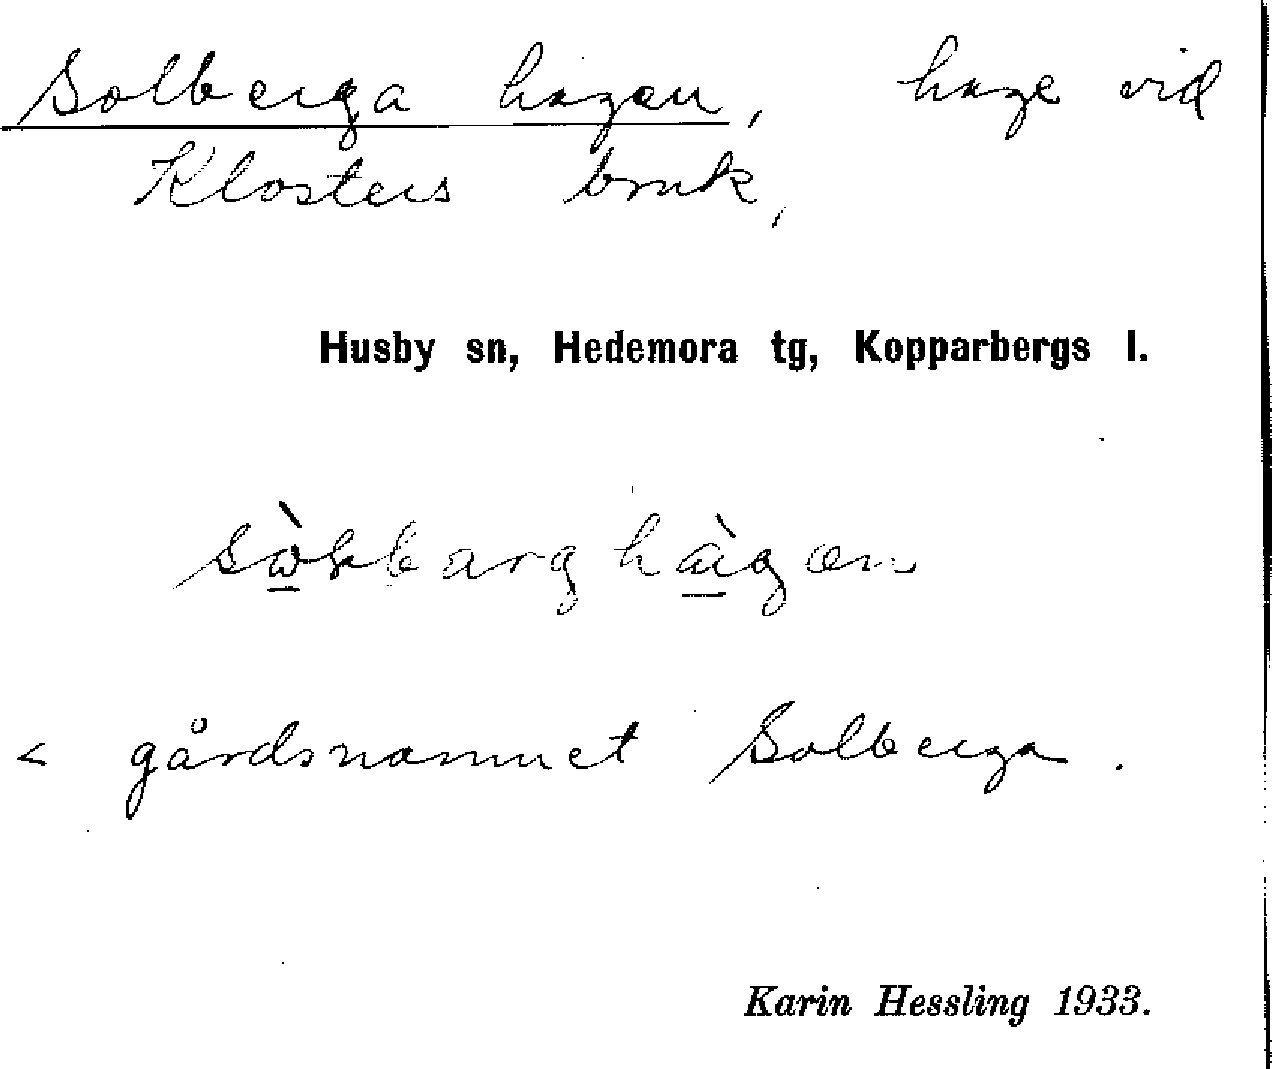 Solberga hagen, hage vid
Klosters bruk,
Husby sn, Hedemora tg, Kopparbergs l.
< gårdsnamnet Solberga.
Karin Hessling 1933.